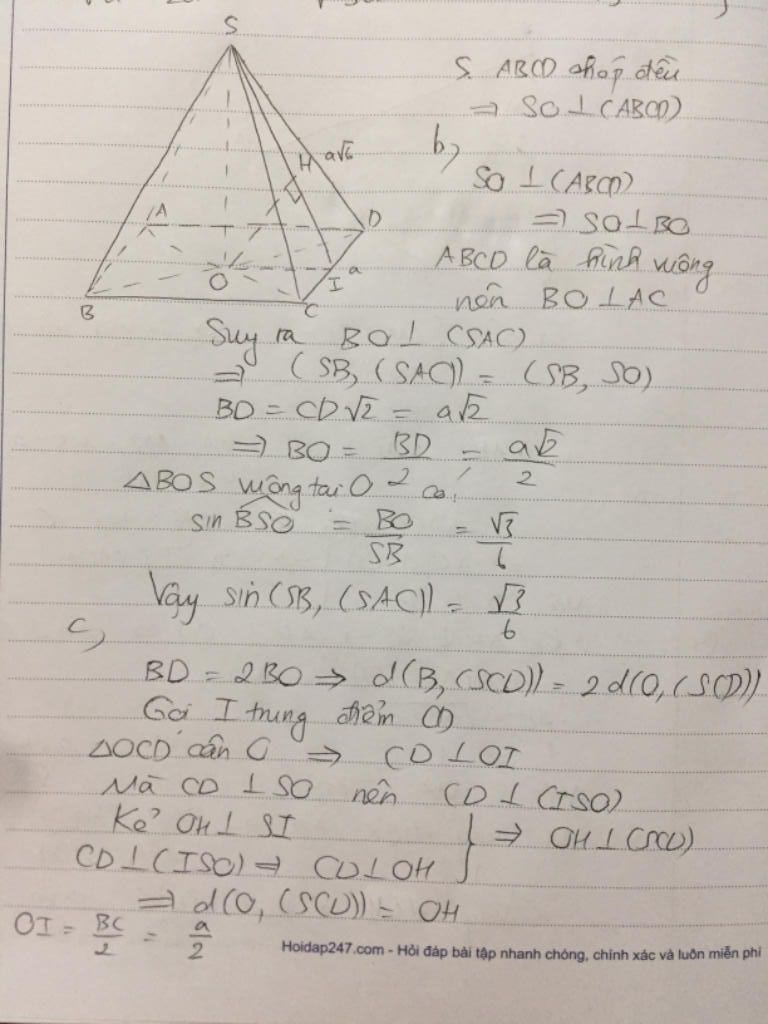 S
S. ABCD chóp đều
⇒ SO ⊥ (ABCD)
H a√6
b)
SO ⊥ (ABCD)
⇒ SO ⊥ BO
A
D
ABCD là hình vuông
O
I
a
nên BO ⊥ AC
B
C
Suy ra BO ⊥ (SAC)
⇒ (SB, (SAC)) = (SB, SO)
BD = CD√2 = a√2
⇒ BO = BD/2 = a√2/2
△BOS vuông tại O có:
sin BSO = BO/SB = √3/6
Vậy sin(SB, (SAC)) = √3/6
c)
BD = 2BO ⇒ d(B, (SCD)) = 2d(O, (SCD))
Gọi I trung điểm CD
△OCD cân O ⇒ CD ⊥ OI
Mà CD ⊥ SO nên CD ⊥ (ISO)
Kẻ OH ⊥ SI
} ⇒ OH ⊥ (SCD)
CD ⊥ (ISO) ⇒ CD ⊥ OH
⇒ d(O, (SCD)) = OH
OI = BC/2 = a/2
Hoidap247.com - Hỏi đáp bài tập nhanh chóng, chính xác và luôn miễn phí